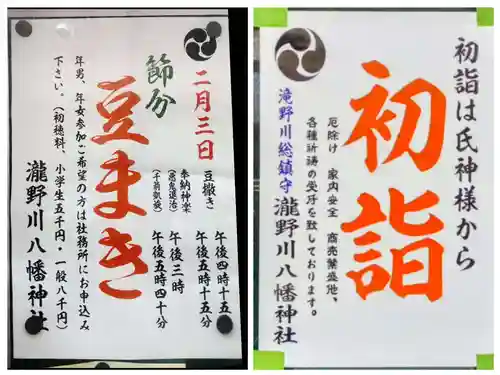 二月三日
節分
豆まき
豆撒き 午後四時十五分
午後五時十五分
奉納神楽
(悪鬼退治) 午後三時
(千箭祭) 午後五時四十分
年男、年女参加ご希望の方は社務所にお申込み
下さい。(初穂料、小学生五千円・一般八千円)
瀧野川八幡神社
初詣は氏神様から
初詣
厄除け 家内安全 商売繁盛他、
各種祈祷の受付を致しております。
滝野川総鎮守
瀧野川八幡神社